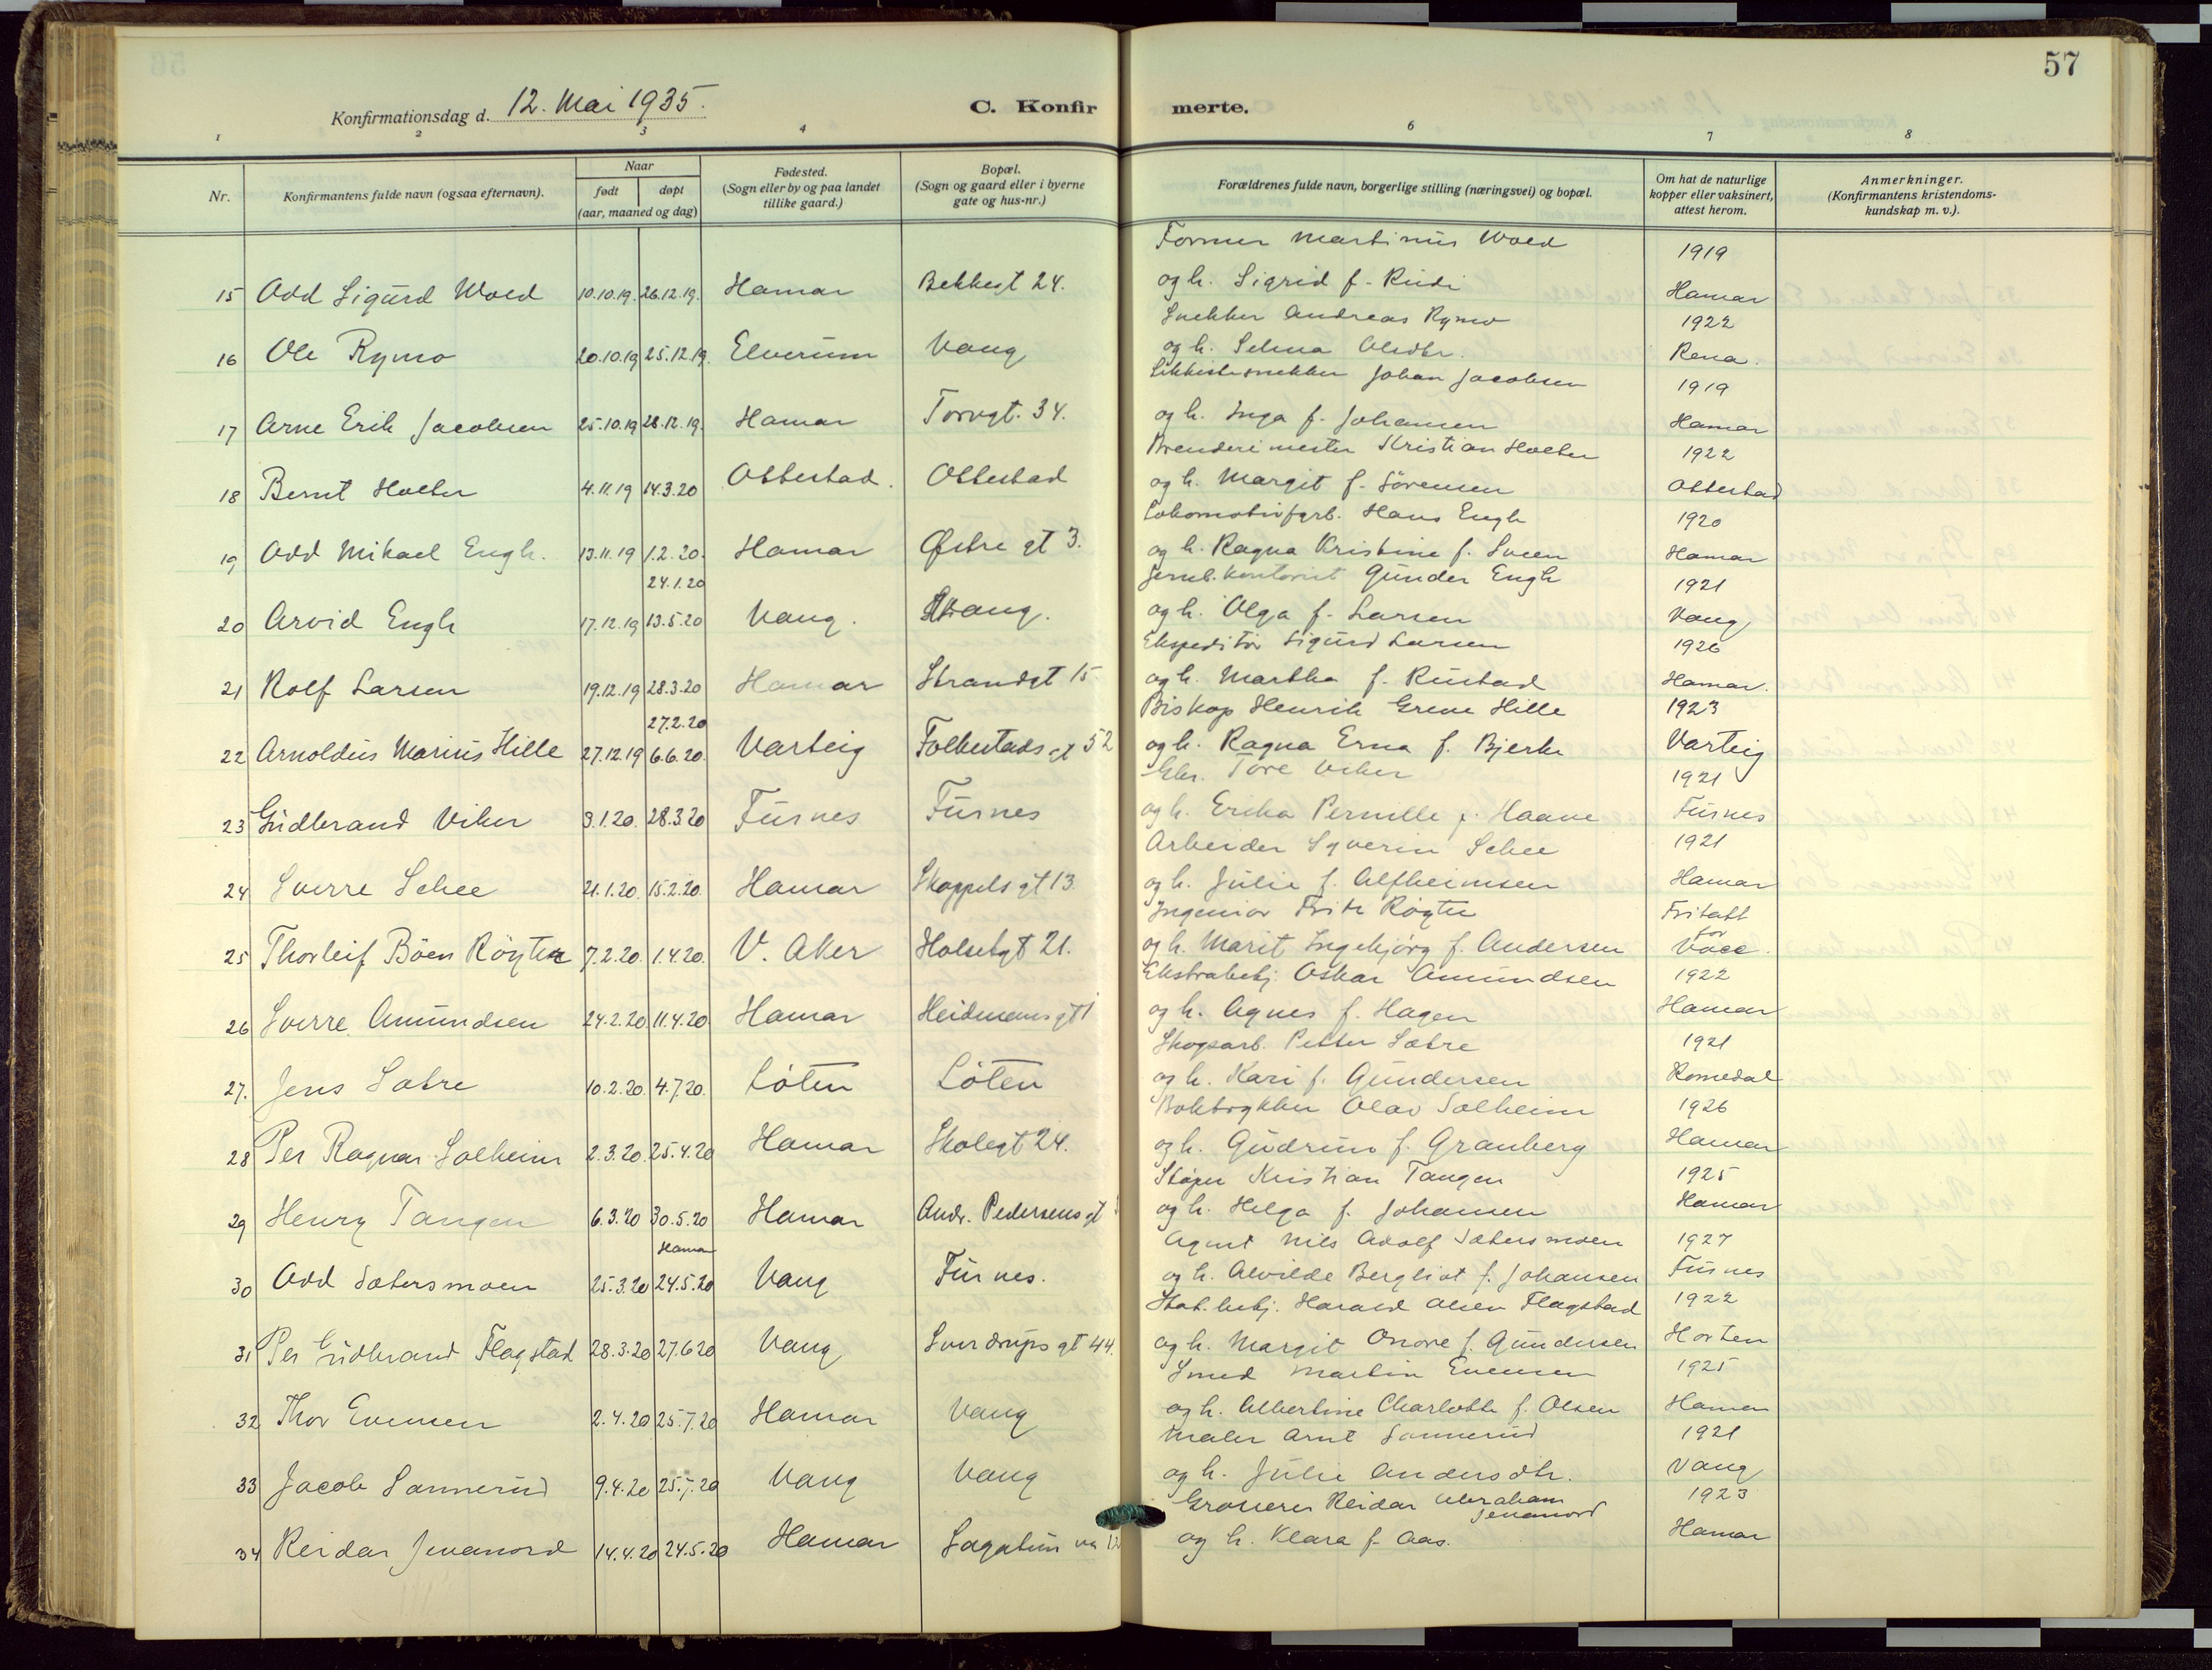 57
Konfirmationsdag d. 12. Mai 1935.
C. Konfirmerte.
1 2 3 4 6 7 8
Nr.
Konfirmantens fulde navn (ogsaa efternavn).
Naar
født døpt
(aar, maaned og dag)
Fødested.
(Sogn eller by og paa landet
tillike gaard.)
Bopæl.
(Sogn og gaard eller i byerne
gate og hus-nr.)
Forældrenes fulde navn, borgerlige stilling (næringsvei) og bopæl.
Om hat de naturlige
kopper eller vaksinert,
attest herom.
Anmerkninger.
(Konfirmantens kristendoms-
kundskap m. v.).
Former Martinus Wold 1919
15 Odd Sigurd Wold 10.10.19. 26.12.19. Hamar Bekkegt 24. og h. Sigrid f. Rudi Hamar
Snekker Andreas Rymo 1922
16 Ole Rymo 20.10.19 25.12.19. Elverum Vang og h. Selma Olsdtr. Rena.
Likkistesnekker Johan Jacobsen 1919
17 Arne Erik Jacobsen 25.10.19 28.12.19. Hamar Torvgt. 34. og h. Inga f. Johansen Hamar
Brenderimester Kristian Holter 1922
18 Bernt Holter 4.11.19 14.3.20 Ottestad. Ottestad og h. Margit f. Sörensen Ottestad
Lokomotivfyrb. Hans Engh 1920
19 Odd Mikael Engh. 13.11.19 1.2.20. Hamar Østre gt 3. og h. Ragna Kristine f. Sveen Hamar
24.1.20 Jernb.kontorist Gunder Engh 1921
20 Arvid Engh 17.12.19 13.5.20 Vang. Vang. og h. Olga f. Larsen Vang
Ekspeditör Sigurd Larsen 1926
21 Rolf Larsen 19.12.19 28.3.20 Hamar Strandgt 15 og h. Martha f. Rustad Hamar.
27.2.20 Biskop Henrik Greve Hille 1923
22 Arnoldus Marius Hille 27.12.19 6.6.20. Varteig Folkestads gt 52 og h. Ragna Erna f. Bjerke Varteig
Gbr. Tore Viker 1921
23 Gudbrand Viker 3.1.20. 28.3.20 Furnes Furnes og h. Erika Pernille f. Haave Furnes
Arbeider Syverin Schee 1921
24 Sverre Schee 21.1.20. 15.2.20. Hamar Skappels gt 13. og h. Julie f. Alfheimsen Hamar
Ingeniør Frits Røgter Fritatt
25 Thorleif Böen Röyter 7.2.20. 1.4.20. V. Aker Holsetgt 21. og h. Marit Ingebjørg f. Andersen for Vacc.
Ekstrabetj. Oskar Amundsen 1922
26 Sverre Amundsen 24.2.20 11.4.20 Hamar Heidmansgt 1 og h. Agnes f. Hagen Hamar
Skogsarb. Petter Sætre 1921
27. Jens Sætre 10.2.20. 4.7.20. Löten Löten og h. Kari f. Gundersen Romedal
Boktrykker Olav Solheim 1926
28 Per Ragnar Solheim 2.3.20. 25.4.20 Hamar Skolegt 24. og h. Gudrun f. Granberg Hamar
Støper Kristian Tangen 1925
29 Henry Tangen 6.3.20 30.5.20 Hamar Andr. Pedersens gt og h. Helga f. Johansen Hamar
Hamar Agent Nils Adolf Sætersmoen 1927
30 Odd Sætersmoen 25.3.20 24.5.20 Vang Furnes. og h. Alvilde Bergliot f. Johansen Furnes
Stat. betj. Harald Olsen Flagstad 1922
31 Per Gudbrand Flagstad 28.3.20 27.6.20 Vang Sverdrups gt 44. og h. Margit Onore f. Gundersen Horten
Smed Martin Evensen 1925
32 Thor Evensen 2.4.20 25.7.20 Hamar Vang og h. Albertine Charlotte f. Olsen Hamar
Maler Arnt Sannerud 1921
33 Jacob Sannerud 9.4.20 25.7.20 Vang Vang og h. Julie Andersdtr. Vang
Grosserer Reidar Abraham Jevanord 1923
34 Reidar Jevanord 14.4.20 24.5.20 Hamar Sagatun og h. Klara f. Aas. Hamar